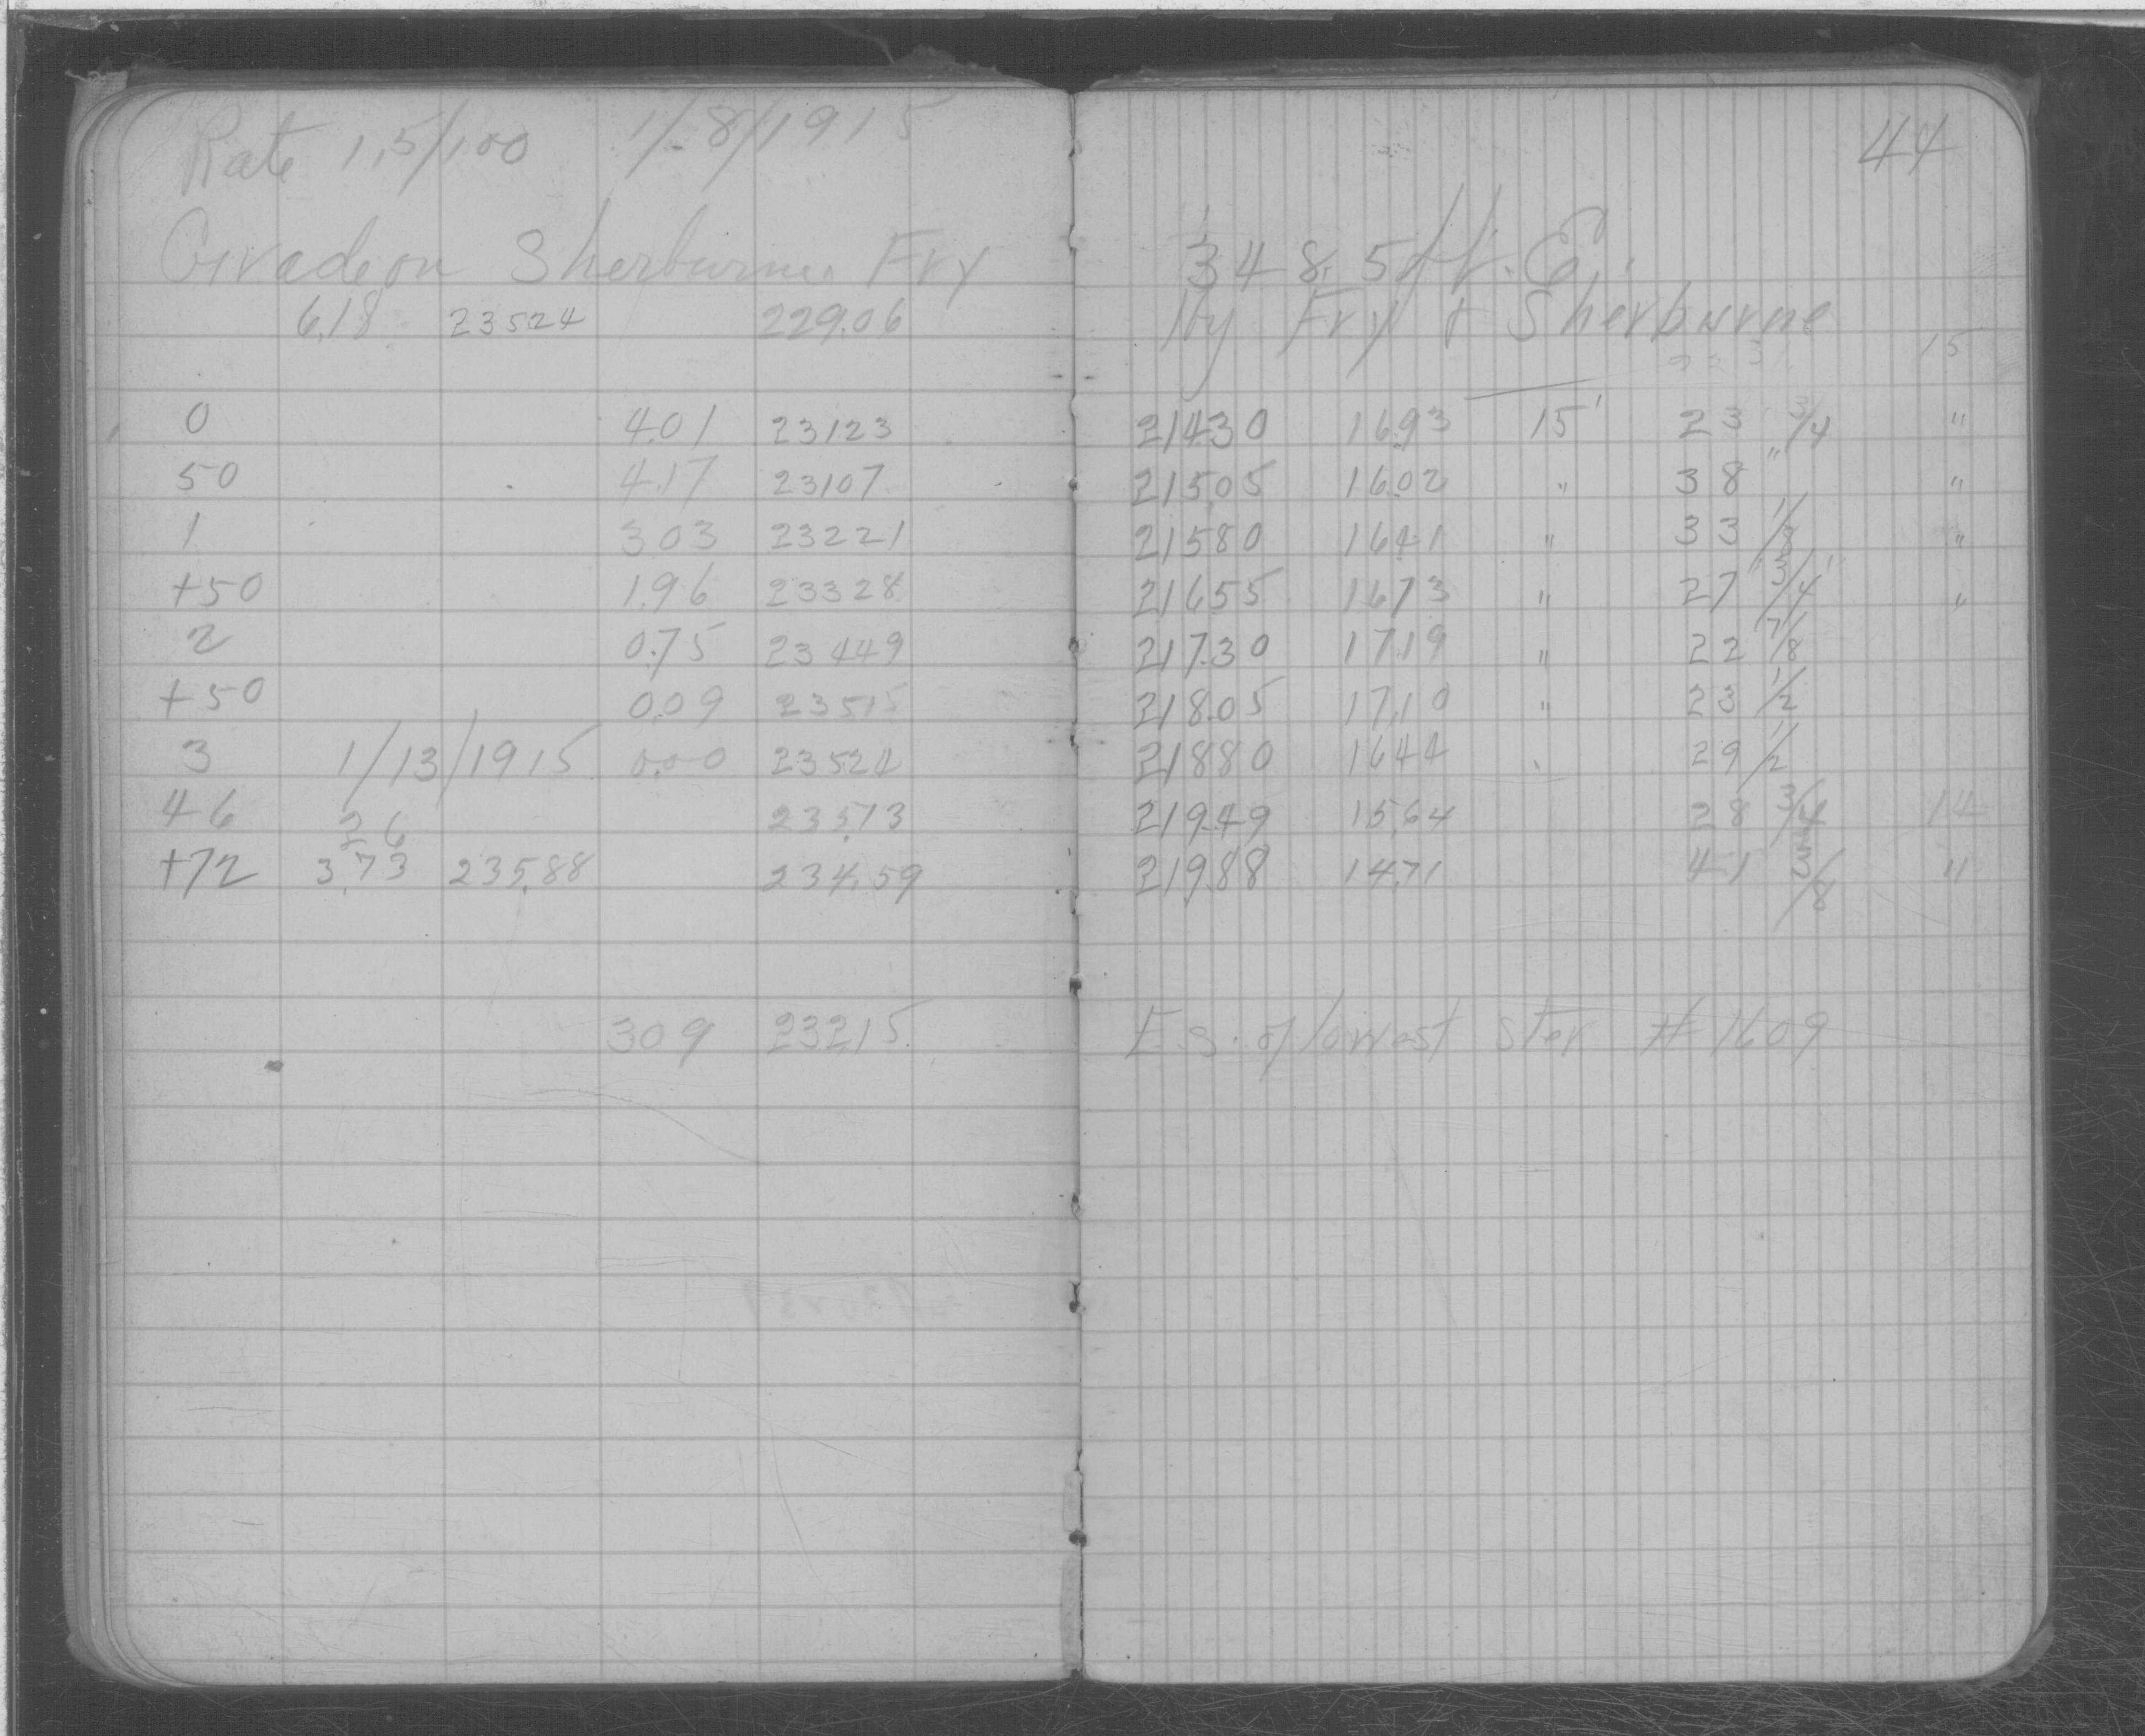 Rate 1.5/100 1/8/1915
Grade on Sherburne Fry
6.18 23524 229.06
0 4.01 23123
50 4.17 23107
1 3.03 23221
+50 1.96 23328
2 0.75 23449
+50 0.09 23515
3 1/13/1915 0.00 23524
46 26 235.73
+72 3.73 235.88 234.59
3.09 232.15
44
348.5 ft. E.
Hy Fry & Sherburne
15
21430 16.93 15' 23 3/4 "
21505 16.02 " 38 "
21580 1641 " 33 "
21655 1673 " 27 3/4 "
217.30 17.19 " 22 7/8
218.05 17.10 " 23 1/2
21880 1644 29 1/2
219.49 15.64 28 3/4 14
219.88 14.71 41 3/8 "
E.s. of lowest step # 1609